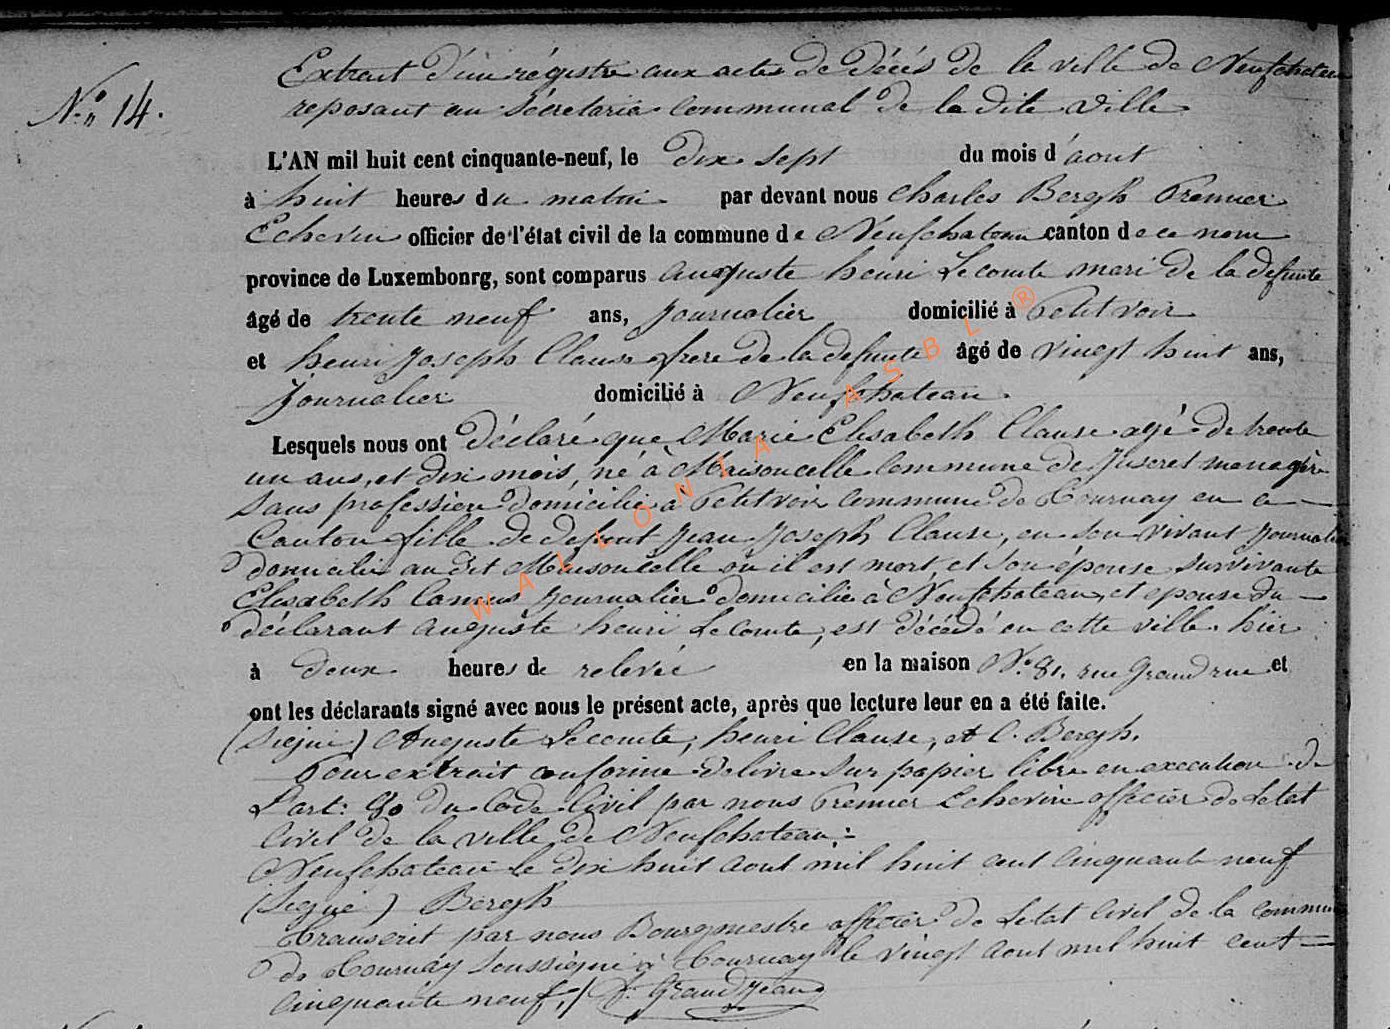 Extrait d'un régistre aux actes de Décés de la ville de Neufchateau
N.° 14.
reposant au Sécretaria Communal de la dite ville
L'AN mil huit cent cinquante-neuf, le dix sept du mois d'aout
à huit heures du matin par devant nous Charles Bergh Premier
Echevin officier de l'état civil de la commune de Neufchateau canton de ce nom
province de Luxembonrg, sont comparus auguste henri Lecomte mari de la defunte
âgé de trente neuf ans, Journalier domicilié à Petitvoir
et henri Joseph Clause frere de la defunte âgé de vingt huit ans,
Journalier domicilié à Neufchateau
Lesquels nous ont déclaré que Marie Elisabeth Clause agé de trente
un ans, et dix mois, né à Maisoncelle Commune de Juseret menagère
Sans profession domicilié a Petitvoir Commune de Tournay en ce
Canton fille de defunt Jean Joseph Clause, en son vivant Journalier
domicilié au dit Maisoncelle où il est mort et son épouse survivante
Elisabeth Camus Journalier domicilié à Neufchateau, et epouse du
déclarant auguste henri Lecomte, est décédé en cette ville hier
à deux heures de relevée en la maison N.° 81. rue Grand rue et
ont les déclarants signé avec nous le présent acte, après que lecture leur en a été faite.
(Signé) Auguste Lecomte, henri Clause, et C. Bergh.
Pour extrait conforme delivre sur papier libre en execution de
L'art: 80 du Code Civil par nous Premier Echevin officier de Letat
Civil de la ville de Neufchateau :-
Neufchateau le dix huit aout mil huit cent cinquante neuf
(Signé) Bergh
Transcrit par nous Bourgmestre officier de Letat Civil de la commune
de Tournay Soussigné à Tournay le vingt aout mil huit cent
cinquante neuf ./. J. Grandjean
WALLONIA ASBL ®